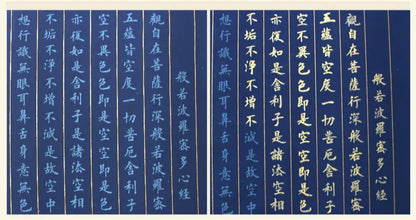 般若波羅蜜多心經
觀自在菩薩行深般若波羅蜜
五蘊皆空度一切苦厄舍利子
空不異色色即是空空即是色
亦復如是舍利子是諸法空相
不垢不淨不增不減是故空中
想行識無眼耳鼻舌身意無色
般若波羅蜜多心經
觀自在菩薩行深般若波羅蜜
五蘊皆空度一切苦厄舍利子
空不異色色即是空空即是色
亦復如是舍利子是諸法空相
不垢不淨不增不減是故空中
想行識無眼耳鼻舌身意無色